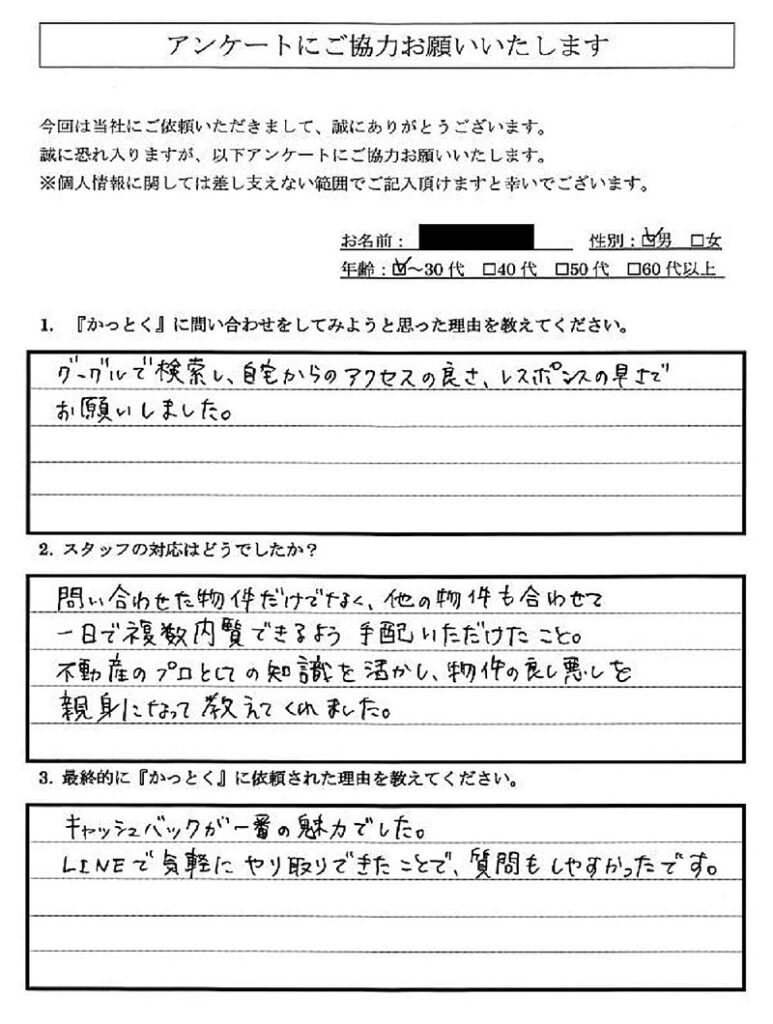 アンケートにご協力お願いいたします
今回は当社にご依頼いただきまして、誠にありがとうございます。
誠に恐れ入りますが、以下アンケートにご協力お願いいたします。
※個人情報に関しては差し支えない範囲でご記入頂けますと幸いでございます。
お名前： 性別：☑男 □女
年齢：☑～30代 □40代 □50代 □60代以上
1. 『かっとく』に問い合わせをしてみようと思った理由を教えてください。
グーグルで検索し、自宅からのアクセスの良さ、レスポンスの早さで
お願いしました。
2. スタッフの対応はどうでしたか？
問い合わせた物件だけでなく、他の物件も合わせて
一日で複数内覧できるよう手配いただけたこと。
不動産のプロとしての知識を活かし、物件の良し悪しを
親身になって教えてくれました。
3. 最終的に『かっとく』に依頼された理由を教えてください。
キャッシュバックが一番の魅力でした。
LINEで気軽にやり取りできたことで、質問もしやすかったです。